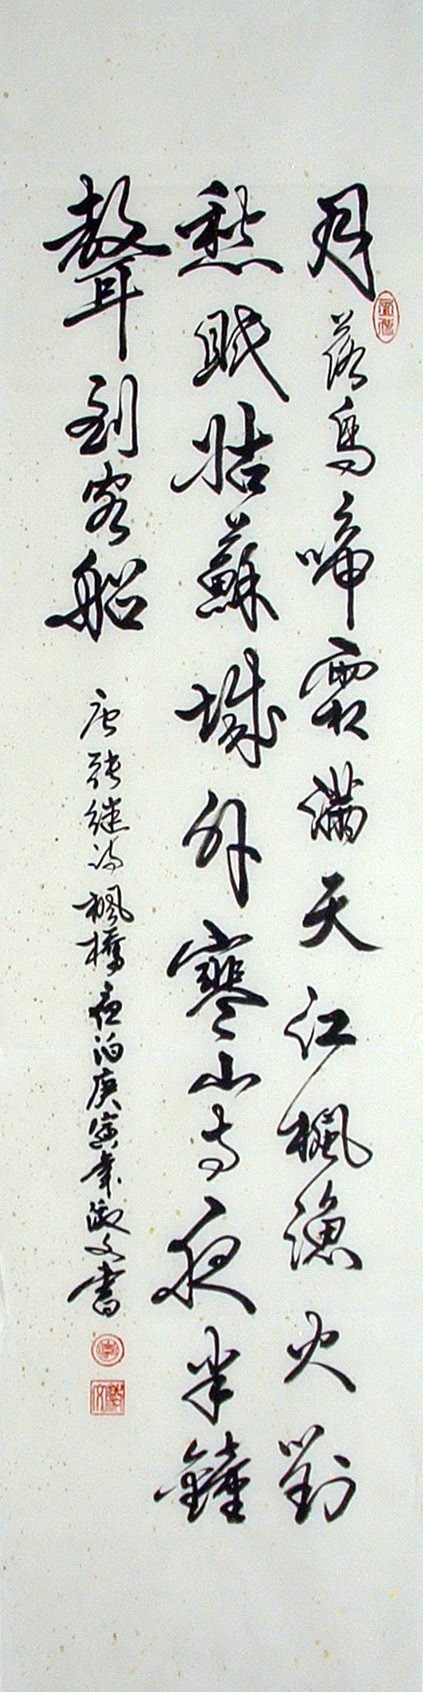 月落烏啼霜滿天江楓漁火對
愁眠姑蘇城外寒山寺夜半鐘
聲到客船
唐張继诗楓橋夜泊庚寅年淑文書